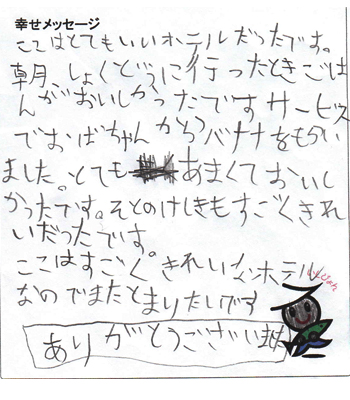 幸せメッセージ
ここはとてもいいホテルだったです。
朝、しょくどうに行ったときごは
んがおいしかったですサービス
でおばちゃんからバナナをもらい
ました。とても あまくておいし
かったです。そとのけしきもすごくきれ
いだったです。
ここはすごく。きれいなホテル
なのでまたとまりたいです
ありがとうございます